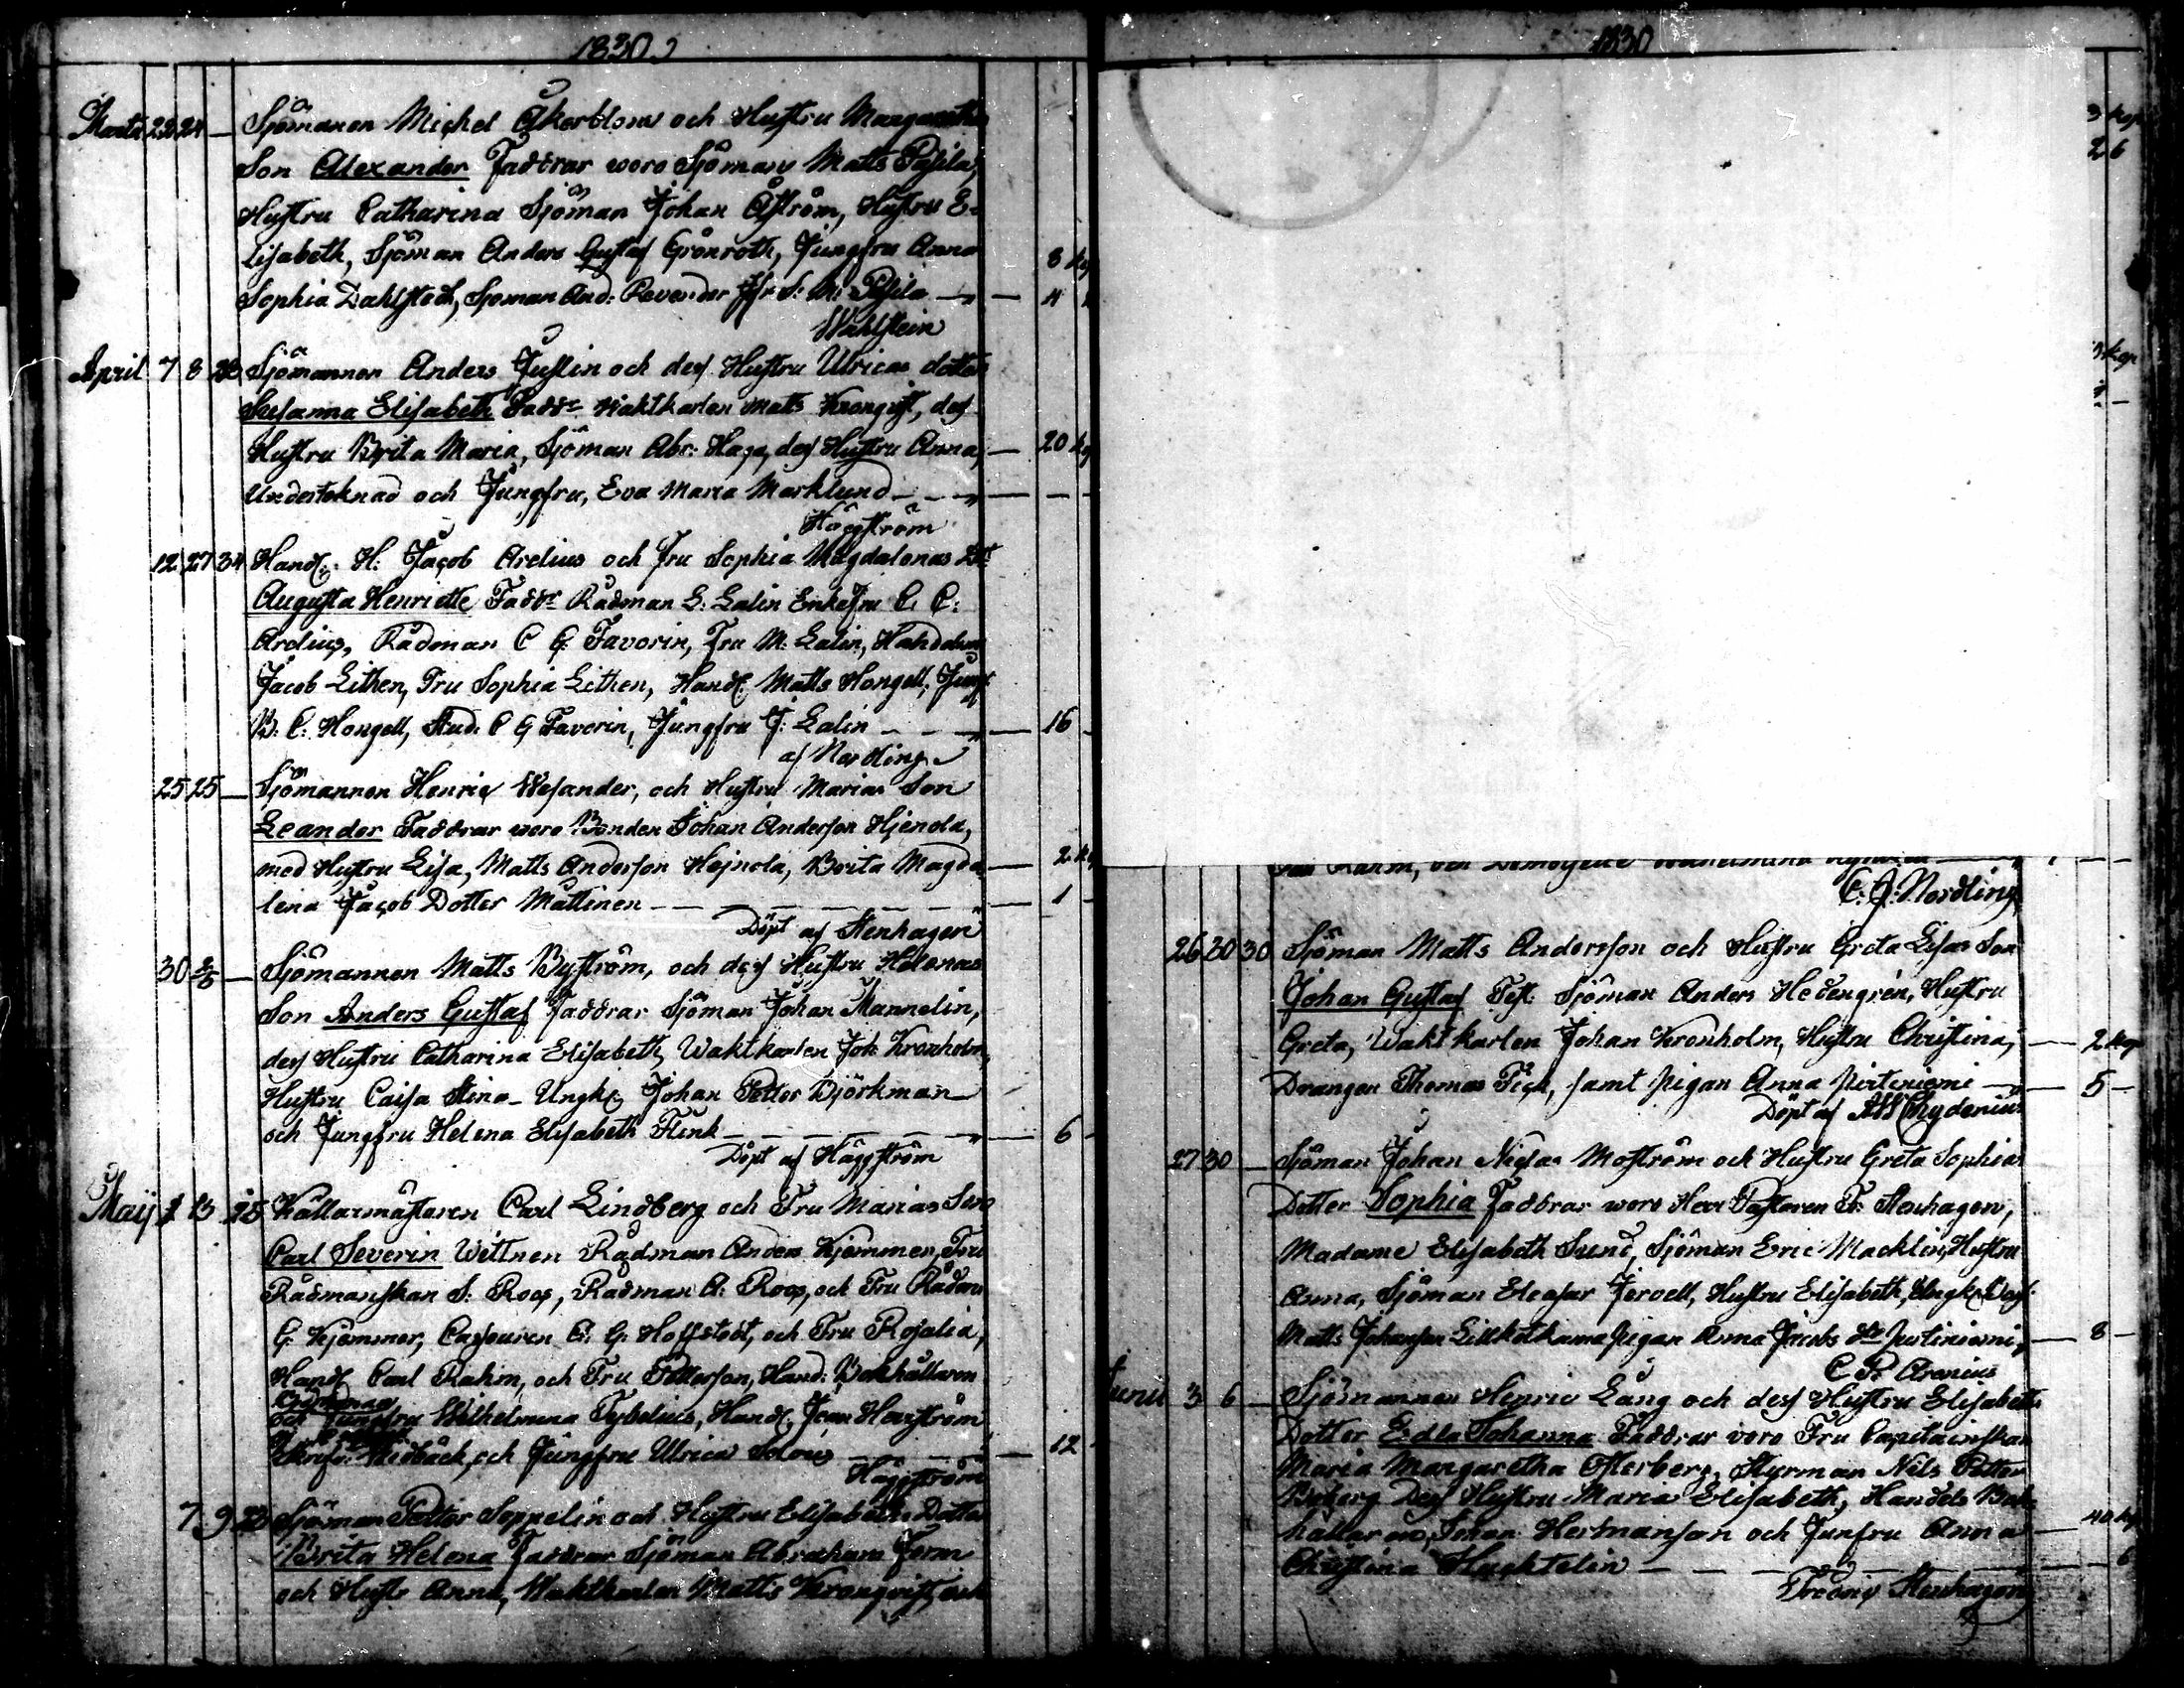 1830
Martii 22 24 — Sjömannen Michel Åkerblom och Hustru Margaretha
Son Alexander Faddrar woro Sjöman Matts Passila,
Hustru Catharina Sjöman Johan Åström, Hustru E-
lisabeth, Sjöman Anders Gustaf Grönroth, Jungfru Anna 8 kop
Sophia Dahlstedt, Sjöman And: Revender Jfr S: M: Passila — 4
Wahlstein
April 7 8 Sjömannen Anders Justin och dess Hustru Ulricas dotter
Susanna Elisabeth Faddr Waktkarlen Matts Kronqvist, dess
Hustru Brita Maria, Sjöman Abr: Haga, dess Hustru Anna, — 20 kop
Underteknad och Jungfru, Eva Maria Marklund
Häggström
12 27 34 Handl: H: Jacob Arelius och Fru Sophia Magdalenas Dtr
Augusta Henriette Faddr Rådman L: Lalin Enkefru C. C:
Arelius, Rådman C G Favorin, Fru M: Lalin, Handelsm
Jacob Lithen, Fru Sophia Lithen, Handl: Matts Hongell, Jungf
B: C: Hongell, Stud: C G Favorin, Jungfru J: Lalin — 16
af Nordling
25 25 — Sjömannen Henric Wesander, och Hustru Marias Son
Leander Faddrar woro Bonden Johan Anderson Hjenola,
med Hustru Lisa, Matts Anderson Hejnola, Brita Magda — 2 kop
lena Jacob Dotter Mattinen — 1
Döpt af Stenhagen
30 2/5 — Sjömannen Matts Byström, och dess Hustru Helenas
Son Anders Gustaf Faddrar Sjöman Johan Mannelin,
dess Hustru Catharina Elisabeth, Waktkarlen Joh: Kronholm,
Hustru Caisa Stina — Ungk: Johan Petter Björkman
och Jungfru Helena Elisabeth Flink — 6
Döpt af Häggström
Maij 1 13 Källarmästaren Carl Lindberg och Fru Marias Son
Carl Severin Wittnen Rådman Anders Kjemmer, Fru
Rådmanskan S: Roos, Rådman A: Roos, och Fru Rådm
G: Kjemmer, Casseuren C: G: Hoffstedt, och Fru Rosalia,
Handl Carl Rahm, och Fru Petterson, Hand: Bokhållaren
och Jungfru Wilhelmina Sybelius, Handl. Jean Henström
Widbäck, och Jungfru Ulrica — 12
Häggström
7 9 23 Sjöman Petter Seppelin och Hustru Elisabeths Dotter
Brita Helena Faddrar Sjöman Abraham Ferm
och Hustr Anna, Waktkarlen Matts Kronqvist, och
1830
3 kop
26
3 kop
Rahm, och Demoiselle Wilhelmina
C. J. Nordling
26 30 30 Sjöman Matts Andersson och Hustru Greta Lisas Son
Johan Gustaf Test: Sjöman Anders Hedengrén, Hustru
Greta, Waktkarlen Johan Kronholm, Hustru Christina, — 2 kop
Drangen Thomas Fisk, samt pigan Anna Pirtiniemi — 5 —
Döpt af Chydenius
27 30 — Sjöman Johan Niclas Moström och Hustru Greta Sophias
Dotter Sophia Faddrar woro Herr Pastoren Fr: Stenhagen,
Madame Elisabeth Sund, Sjöman Eric Macklin, Hustru
Anna, Sjöman Eleasar Jervell, Hustru Elisabeth, Ungk:
Matts Johansson Lillkotkama pigan Anna Jacobs dr Portiniemi, — 8 —
C P: Aronius
Junii 3 6 — Sjömannen Henric Lang och dess Hustru Elisabeths
Dotter Edla Johanna Faddrar voro Fru Capitainskan
Maria Margaretha Österberg, Styrman Nils Petter
Boberg Dess Hustru Maria Elisabeth, Handels Bok-
hållaren, Johan Hermanson och Junfru Anna — 40 kop
Christina Hacktelin — 6
Fredric Stenhagen